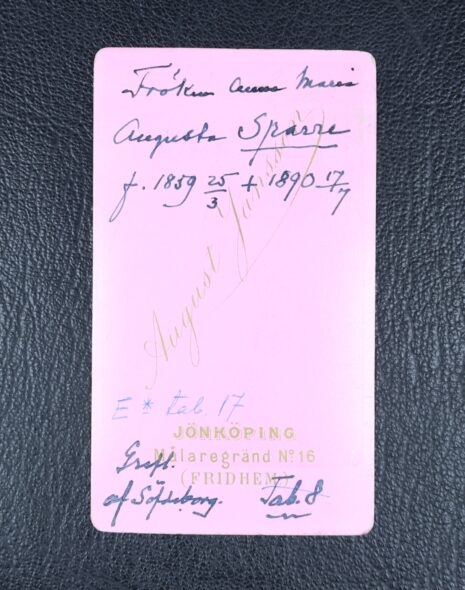 Fröken Anna Maria
Augusta Sparre
f. 1859 25/3 + 1890 17/7
August Jansson
E * tab. 17
JÖNKÖPING
Målaregränd No 16
(FRIDHEM)
Grefl.
af Söfdeborg. Tab. 8